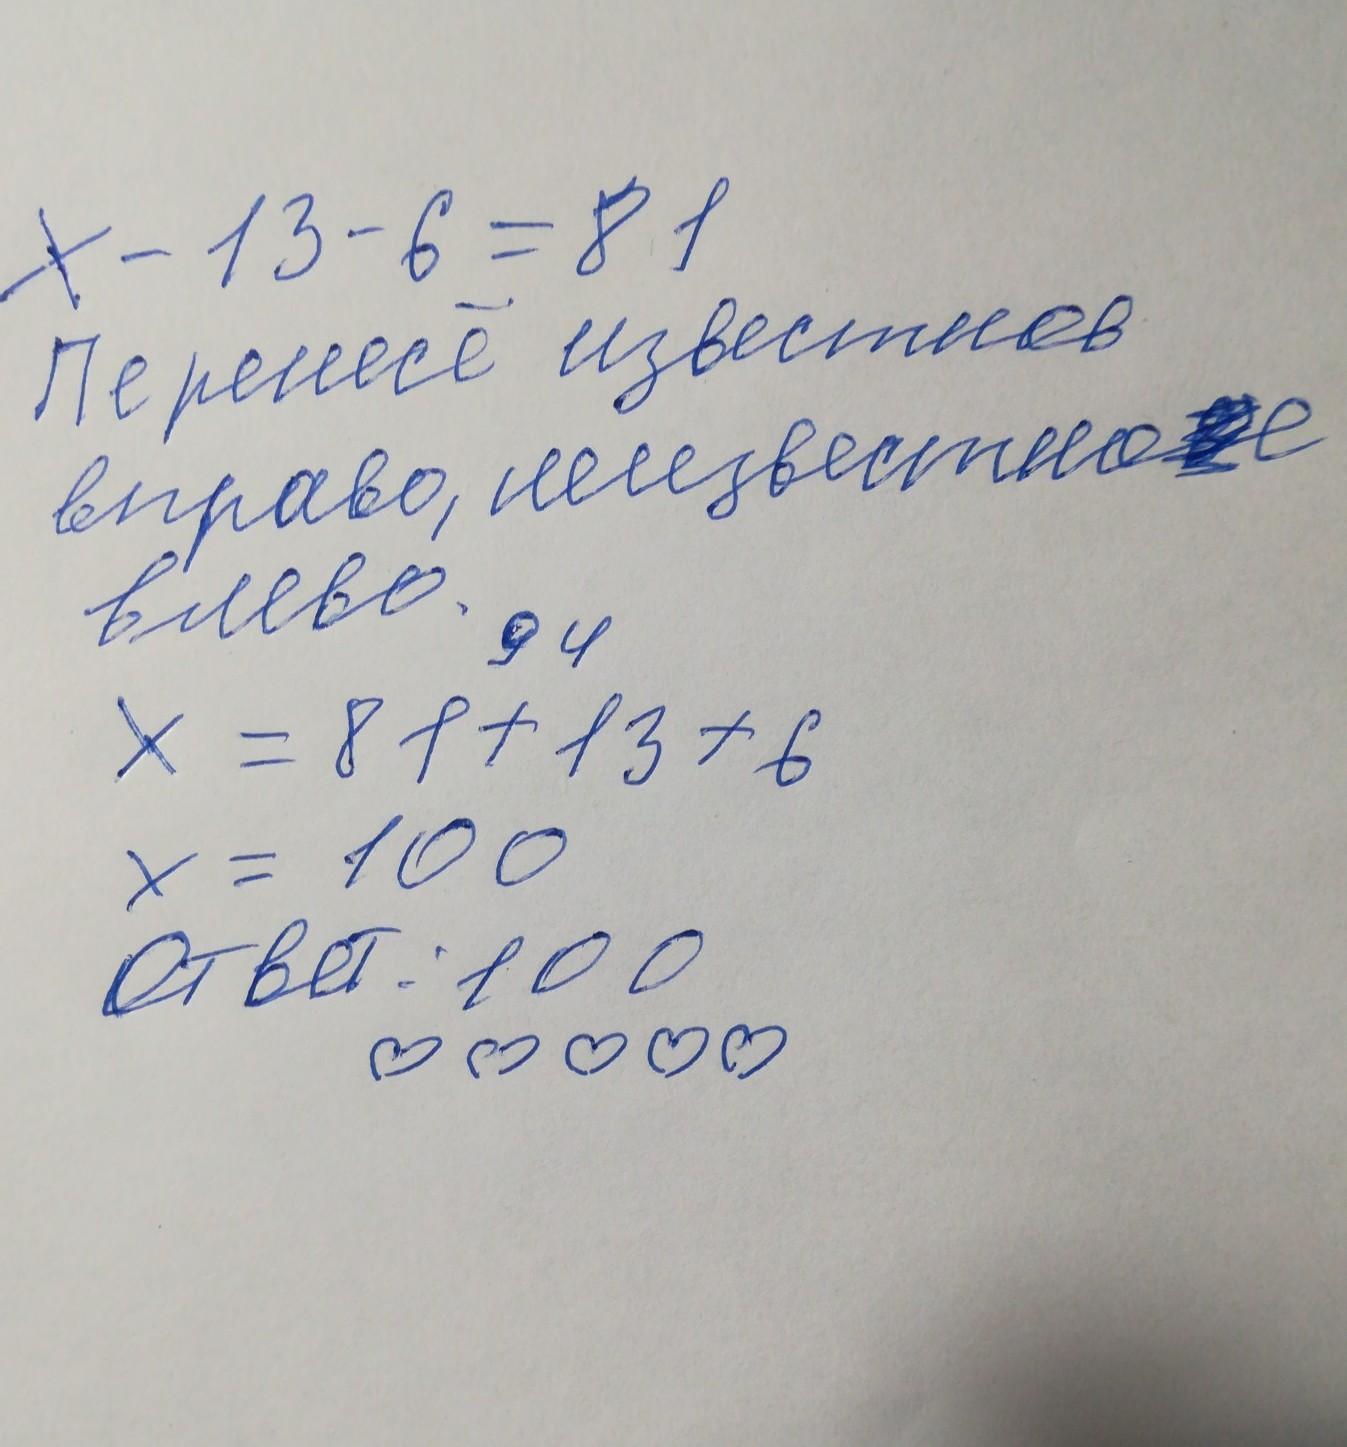 x - 13 - 6 = 81
Перенесё известнов
вправо, неизвестное
влево.
94
x = 81 + 13 + 6
x = 100
Ответ: 100
♡ ♡ ♡ ♡ ♡